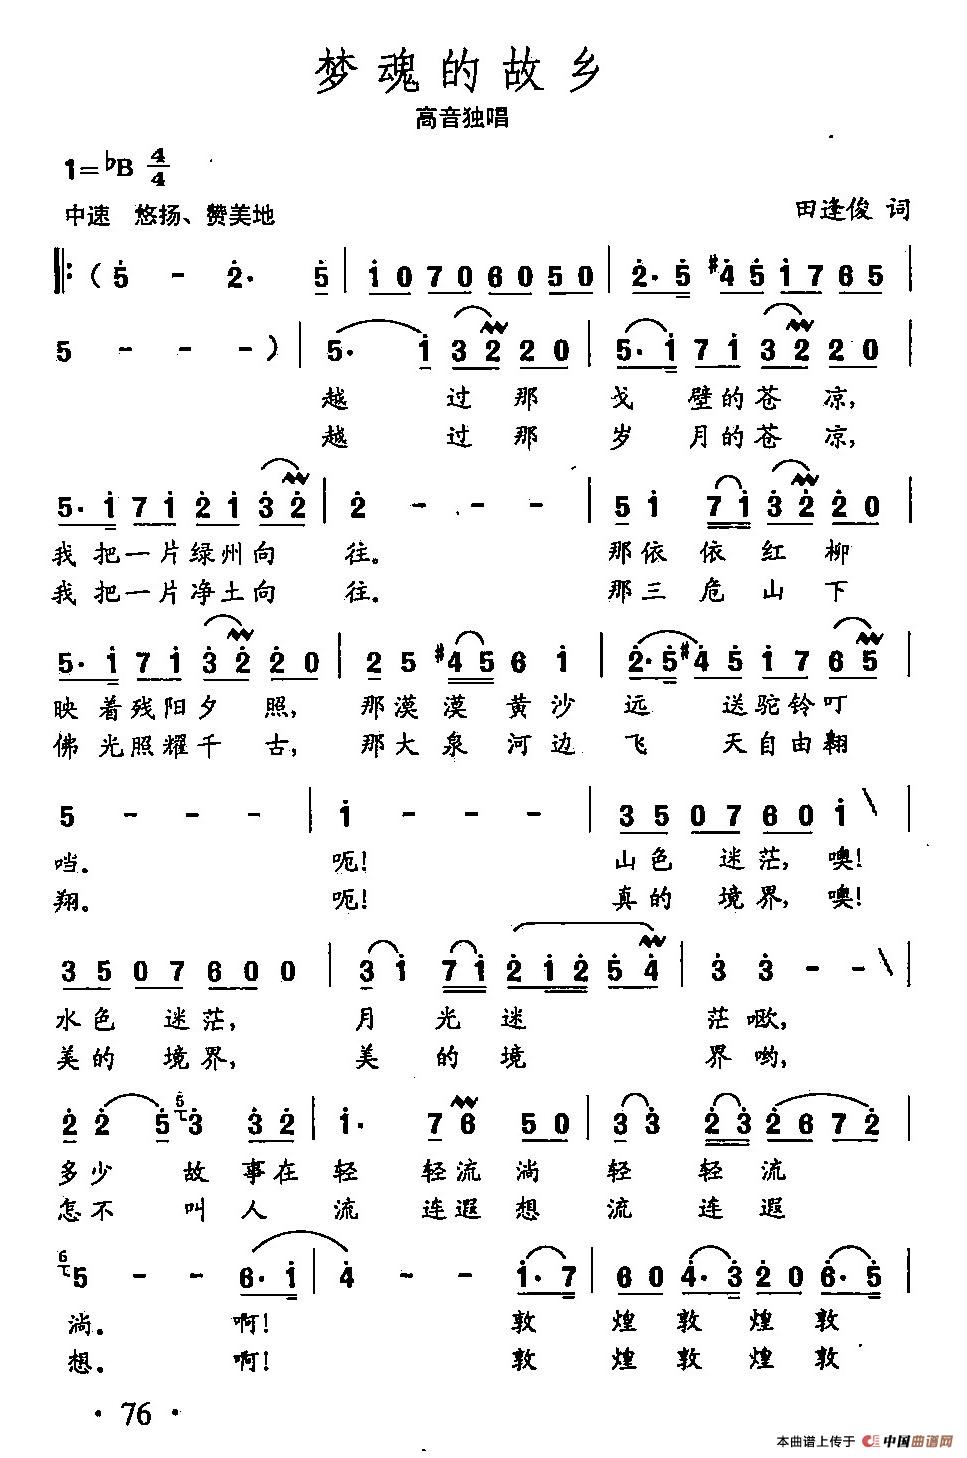 梦魂的故乡
高音独唱
1=♭B 4/4
中速 悠扬、赞美地
田逢俊 词
( 5 - 2· 5 | 1 0 7 0 6 0 5 0 | 2· 5 #4 5 1 7 6 5 |
5 - - - ) | 5· 1 3 2 2 0 | 5· 1 7 1 3 2 2 0 |
越 过 那 戈 壁 的 苍 凉,
越 过 那 岁 月 的 苍 凉,
5· 1 7 1 2 1 3 2 | 2 - - - | 5 1 7 1 3 2 2 0 |
我 把 一 片 绿 州 向 往。 那 依 依 红 柳
我 把 一 片 净 土 向 往。 那 三 危 山 下
5· 1 7 1 3 2 2 0 | 2 5 #4 5 6 1 | 2· 5 #4 5 1 7 6 5 |
映 着 残 阳 夕 照, 那 漠 漠 黄 沙 远 送 驼 铃 叮
佛 光 照 耀 千 古, 那 大 泉 河 边 飞 天 自 由 翱
5 - - - | 1 - - - | 3 5 0 7 6 0 1 \ |
当。 呃! 山 色 迷 茫, 噢!
翔。 呃! 真 的 境 界, 噢!
3 5 0 7 6 0 0 | 3 1 7 1 2 1 2 5 4 | 3 3 - - \ |
水 色 迷 茫, 月 光 迷 茫 呦,
美 的 境 界, 美 的 境 界 哟,
2 2 5 5 3 3 2 | 1· 7 6 5 0 | 3 3 2 3 2 6 7 2 |
多 少 故 事 在 轻 轻 流 淌 轻 轻 流
怎 不 叫 人 流 连 遐 想 流 连 遐
6 5 - - 6· 1 | 4 - - 1· 7 | 6 0 4· 3 2 0 6· 5 |
淌。 啊! 敦 煌 敦 煌 敦
想。 啊! 敦 煌 敦 煌 敦
· 76 ·
本曲谱上传于 中国曲谱网